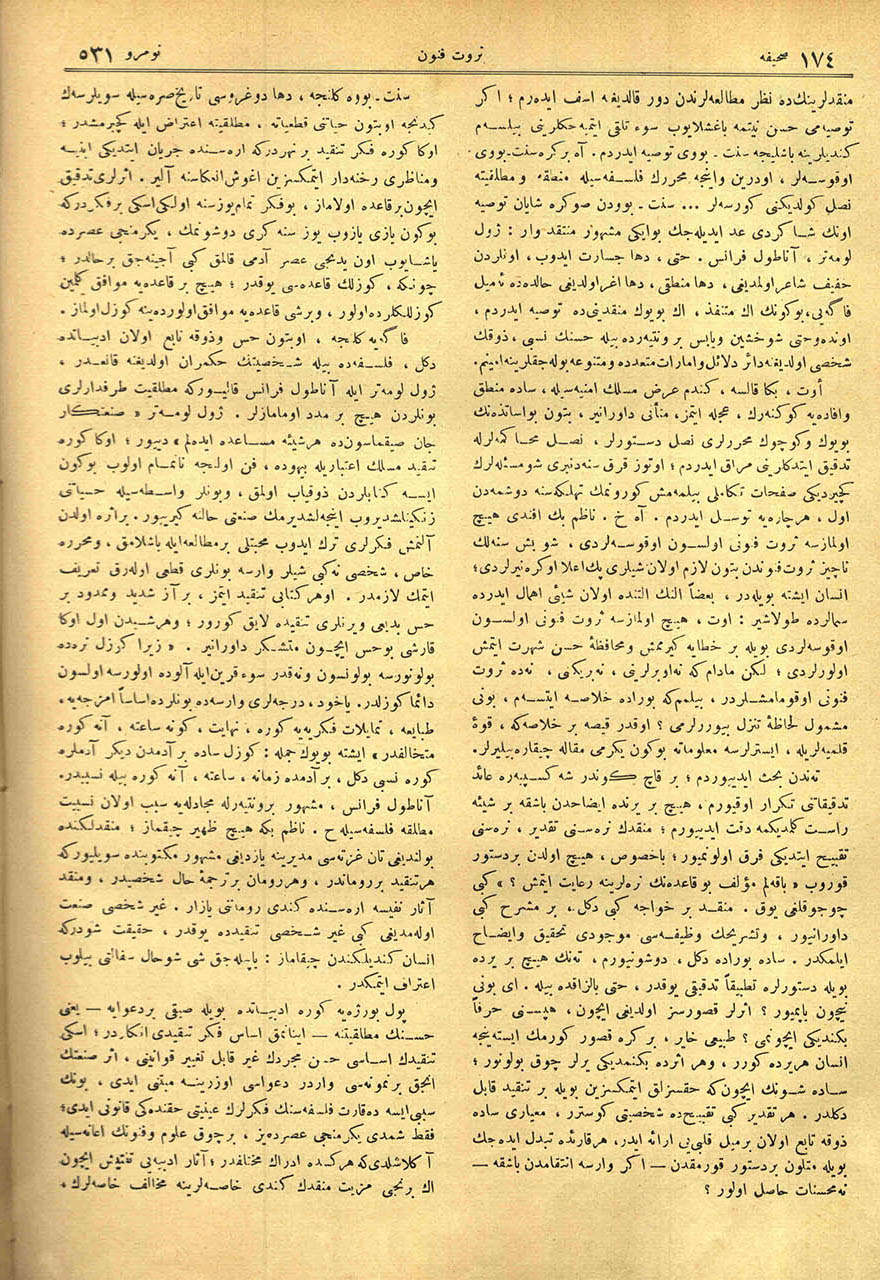 ١٧٤ صحيفه
ثروت فنون
نومرو ٥٣١
منقدلرينك‌ده نظر مطالعه‌لرندن دور قالديغنه اسف ايده‌رم ؛ اكر
توصيه‌مى حسن نيتمه باغشلايوب سوء تلقى ايتميه‌جكلرينى بيلسه‌م
كنديلرينه باشليجه سنت ـ بووى توصيه ايدردم . آه بر كره سنت ـ بووى
اوقوسه‌لر ، اودرين واينجه محررك فلسفه‌سيله منطقه و مطلقيته
نصل كولديكنى كورسه‌لر ... سنت ـ بوودن صوكره شايان توصيه
اونك شاكردى عد ايديله‌جك بوايكى مشهور منتقد وار : ژول
لومه‌تر ، آناطول فرانس . حتى ، دها جسارت ايدوب ، اونلردن
خفيف شاعر اولمديغى ، دها منطقى ، دها اغر اولديغى حالده‌ده ئه‌ميل
فاگه‌يى ، بوكونك اك متنفذ ، اك بويوك منقدينى‌ده توصيه ايدردم ،
اونده‌وحتى شوخشين ويابس برونتيه‌رده بيله حسنك نسبى ، ذوقك
شخصى اولديغنه‌دائر دلائل وامارات متعدده و متنوعه بوله‌جقلرينه‌امينم.
أوت ، بكا قالسه ، كندم عرض مسلك امنيه‌سيله ، ساده منطق
وافاده‌يه كوكنه‌رك ، عجله ايتمز، متأنى داورانير ، بتون بواساتذه‌نك
بويوك وكوچوك محررلرى نصل دستورلر ، نصل محاكمه‌لرله
تدقيق ايتدكلرينى مراق ايدردم ؛ اوتوز قرق سنه‌دنبرى شومسئله‌لرك
كچيرديكى صفحات تكاملى بيلمه‌مش كورونمك تهلكه‌سنه دوشمه‌دن
اول ، هرچاره‌يه توسل ايدردم . آه خ . ناظم بك افندى هيچ
اولمازسه ثروت فنونى اولسون اوقوسه‌لردى ، شو بش سنه‌لك
ناچيز ثروت‌فنوندن بتون لازم اولان شيلرى پك‌اعلا اوكره‌نيرلردى ؛
انسان ايشته بويله‌در ، بعضاً النك التنده اولان شيئى اهمال ايدرده
سمالرده طولاشير : اوت ، هيچ اولمازسه ثروت فنونى اولسون
اوقوسه‌لردى بويله بر خطايه كيرمه‌مش ومحافظهٔ حسن شهرت ايتمش
اولورلردى ؛ لكن مادام كه نه‌اوبرلرينى ، نه‌بريكنى ، نه‌ده ثروت
فنونى اوقومامشلردر ، بيلمم‌كه بوراده خلاصه ايتسه‌م ، بونى
مشمول لحاظهٔ تنزل بيوررلرمى ؟ اوقدر قيصه بر خلاصه‌كه ، قوهٔ
قلميه‌لريله ، ايسترلرسه معلوماتنه بوكون يكرمى مقاله چيقاره‌بيليرلر.
نه‌دن بحث ايدييوردم ؛ بر قاچ كوندر شه كسپيه‌ره عائد
تدقيقاتى تكرار اوقيورم ، هيچ بر يرنده ايضاحدن باشقه بر شيئه
راست كلمديكمه دقت ايدييورم ؛ منقدك نره‌سنى تقدير ، نره‌سنى
تقبيح ايتديكى فرق اولونميور ؛ باخصوص ، هيچ اولدن بردستور
قوروب « باقه‌لم مؤلف بو قاعده‌نك نره‌لرينه رعايت ايتمش ؟ » كبى
چوجوقلغى يوق . منقد بر خواجه كبى دكل ، بر مشرح كبى
داورانيور ، وتشريحك وظيفه‌سى موجودى تحقيق وايضاح
ايلمكدر . ساده بوراده دكل ، دوشونيورم ، ته‌نك هيچ بر يرده
بويله دستورلره تطبيقاً تدقيقى يوقدر ، حتى بالزاقده بيله . اى بونى
نيچون يايميور ؟ اثرلر قصورسز اولديغى ايچون ، هپسنى حرفاً
بكنديكى ايچونمى ؟ طبيعى خاير ، بر كره قصور كورمك ايسته‌ينجه
انسان هريرده كورر ، وهر اثرده بكنمديكى يرلر چوق بولونور ؛
ساده شونك ايچون‌كه حقسزلق ايتمكسزين بويله بر تنقيد قابل
دكلدر . هر تقدير كبى تقبيح‌ده شخصيتى كوستر ، معيارى ساده
ذوقه تابع اولان برميل قلبى‌يى ارائه ايدر، هرقارئده تبدل ايده‌جك
بويله متلون بردستور قورمقدن — اكر وارسه انتقامدن باشقه —
نه‌محسنات حاصل اولور ؟
سنت ـ بووه كلنجه ، دها دوغروسى تاريخ صره‌سيله سويلرسه‌ك
كيدنجه اوبتون حياتى قطعياته . مطلقيته اعتراض ايله كچيرمشدر ؛
اوكا كوره فكر تنقيد بر نهردركه اره‌سنده جريان ايتديكى ابنيه
ومناظرى رخنه‌دار ايتمكسزين آغوش انعكاسنه آلير . اثرلرى‌تدقيق
ايچون‌برقاعده اولاماز ، بوفكر تمام‌يوزسنه اولكى‌اسكى برفكردركه
بوكون يازى يازوب يوز سنه كرى دوشونمك ، يكرمنجى عصرده
ياشايوب اون يدنجى عصر آدمى قالمق كبى آجينه‌جق برحالدر ؛
چونكه ، كوزلك قاعده‌سى يوقدر ؛ هيچ بر قاعده‌يه موافق كلمين
كوزللكلرده‌اولور ، وبرشى قاعده‌يه موافق‌اولورده‌ينه كوزل‌اولماز.
فاگه‌يه كلنجه ، اوبتون حس وذوقه تابع اولان ادبياتده
دكل ، فلسفه‌ده بيله شخصيتك حكمران اولديغنه قانعدر ،
ژول لومه‌تر ايله آناطول فرانس قاليوركه مطلقيت طرفدارلرى
بونلردن هيچ بر مدد اومامازلر . ژول لومه‌تر « صنعتكار
جان صيقماسون‌ده هرشيئه مساعده ايده‌لم » دييور ؛ اوكا كوره
تنقيد مسلك اعتباريله بيهوده ، فن اولنجه ناتمام اولوب بوكون
ايسه كتابلردن ذوقياب اولمق ، وبونلر واسطه‌سيله حسياتى
زنكينلشديروب اينجه‌لشديرمك صنعتى حالنه كيرييور. براثره اولدن
آلنمش فكرلرى ترك ايدوب محبتلى برمطالعه‌ايله باشلامق ، ومحرره
خاص ، شخصى نه‌كبى شيلر وارسه بونلرى قطعى اوله‌رق تعريف
ايتمك لازمدر . اوهركتابى تنقيد ايتمز ، برآز شديد وممدود بر
حس بديعى ويرنلرى تنقيده لايق كورور ؛ وهرشيدن اول اوكا
قارشى بوحس ايچون متشكر داورانير . « زيرا كوزل نره‌ده
بولونورسه بولونسون ونه‌قدر سوء قرين‌ايله آلوده اولورسه اولسون
دائما كوزلدر. ياخود ، درجه‌لرى وارسه‌ده بونلرده‌اساساً امزجه‌يه،
طبايعه ، تمايلات فكريه‌يه كوره ، نهايت ، كونه ساعته ، آنه كوره
متخالفدر » ايشته بويوك جمله : كوزل ساده بر آدمدن ديكر آدملره
كوره نسبى دكل ، برآدمده زمانه ، ساعته ، آنه كوره بيله نسبيدر.
آناطول فرانس ، مشهور برونتيه‌رله مجادله‌يه سبب اولان نسبيت
مطلقه فلسفه‌سيله ح . ناظم بكه هيچ ظهير چيقماز ؛ منقدلكنده
بولنديغى تان غزته‌سى مديرينه يازديغى مشهور مكتوبنده سويليوركه
هرتنقيد بررماندر ، وهررومان برترجمهٔ حال شخصيدر ، ومنقد
آثار نفيسه اره‌سنده كندى رومانى يازار . غير شخصى صنعت
اوله‌مديغى كبى غير شخصى تنقيدده يوقدر ، حقيقت شودركه
انسان كنديلكندن چيقاماز : ياپيله‌جق شى شوحال سفالتى بيلوب
اعتراف ايتمكدر .
پول بورژه‌يه كوره ادبياتده بويله صيقى بردعوايه — يعنى
حسنك مطلقيتنه — اينانمق اساس فكر تنقيدى انكاردر ؛ اسكى
تنقيدك اساسى حسن مجردك غير قابل تغيير قوانينى ، اثر صنعتك
انجق برنمونه‌سى واردر دعواسى اوزرينه مبتنى ايدى ، بونك
سببى‌ايسه ده‌قارت فلسفه‌سنك فكرلرك عينيتى حقنده‌كى قانونى ايدى؛
فقط شمدى يكرمنجى عصرده‌يز ، برچوق علوم وفنونك اعانه‌سيله
آكلاشلدى‌كه هركسده ادراك مختلفدر ؛ آثار ادبيه‌يى تفتيش ايچون
اك برنجى مزيت منقدك كندى خاصه‌لرينه مخالف خاصه‌لرك .